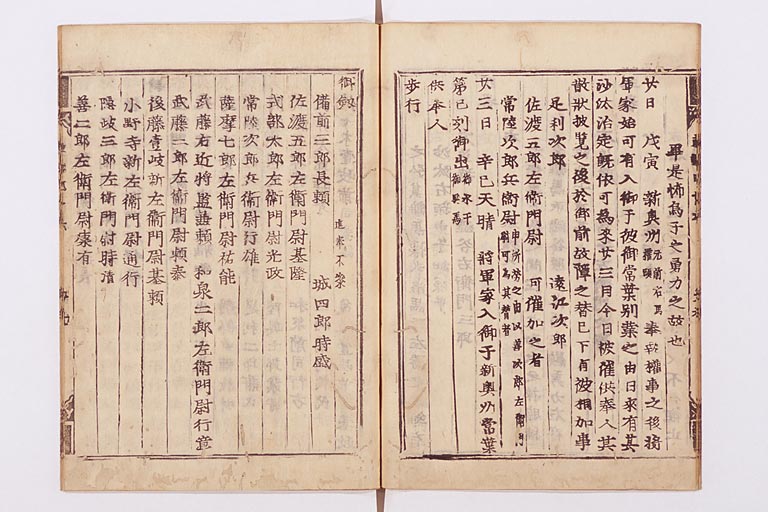 畢是怖為子之勇力之故也
廿日 戊寅 新奥州 奉行擢事之後將
軍家始可有入御于彼御常葉別業之由日来有其
沙汰治定既依可為来廿三日今日被催供奉人其
散状披覧之後於御前故障之替已下有被相加事
足利次郎 遠江次郎
佐渡五郎左衛門尉 可催加之者
常陸次郎兵衛尉
廿三日 辛巳 天晴 將軍家入御于新奥州常葉
第巳刻御出
供奉人
歩行
御釼
備前三郎長頼 城四郎時盛
佐渡五郎左衛門尉基隆
式部太郎左衛門尉光政
常陸次郎兵衛尉行雄
薩摩七郎左衛門尉祐能
武藤右近將監兼頼 和泉三郎左衛門尉行章
武藤二郎左衛門尉頼泰
後藤壹岐新左衛門尉基頼
小野寺新左衛門尉通行
隠岐三郎左衛門尉時清
善二郎左衛門尉康有